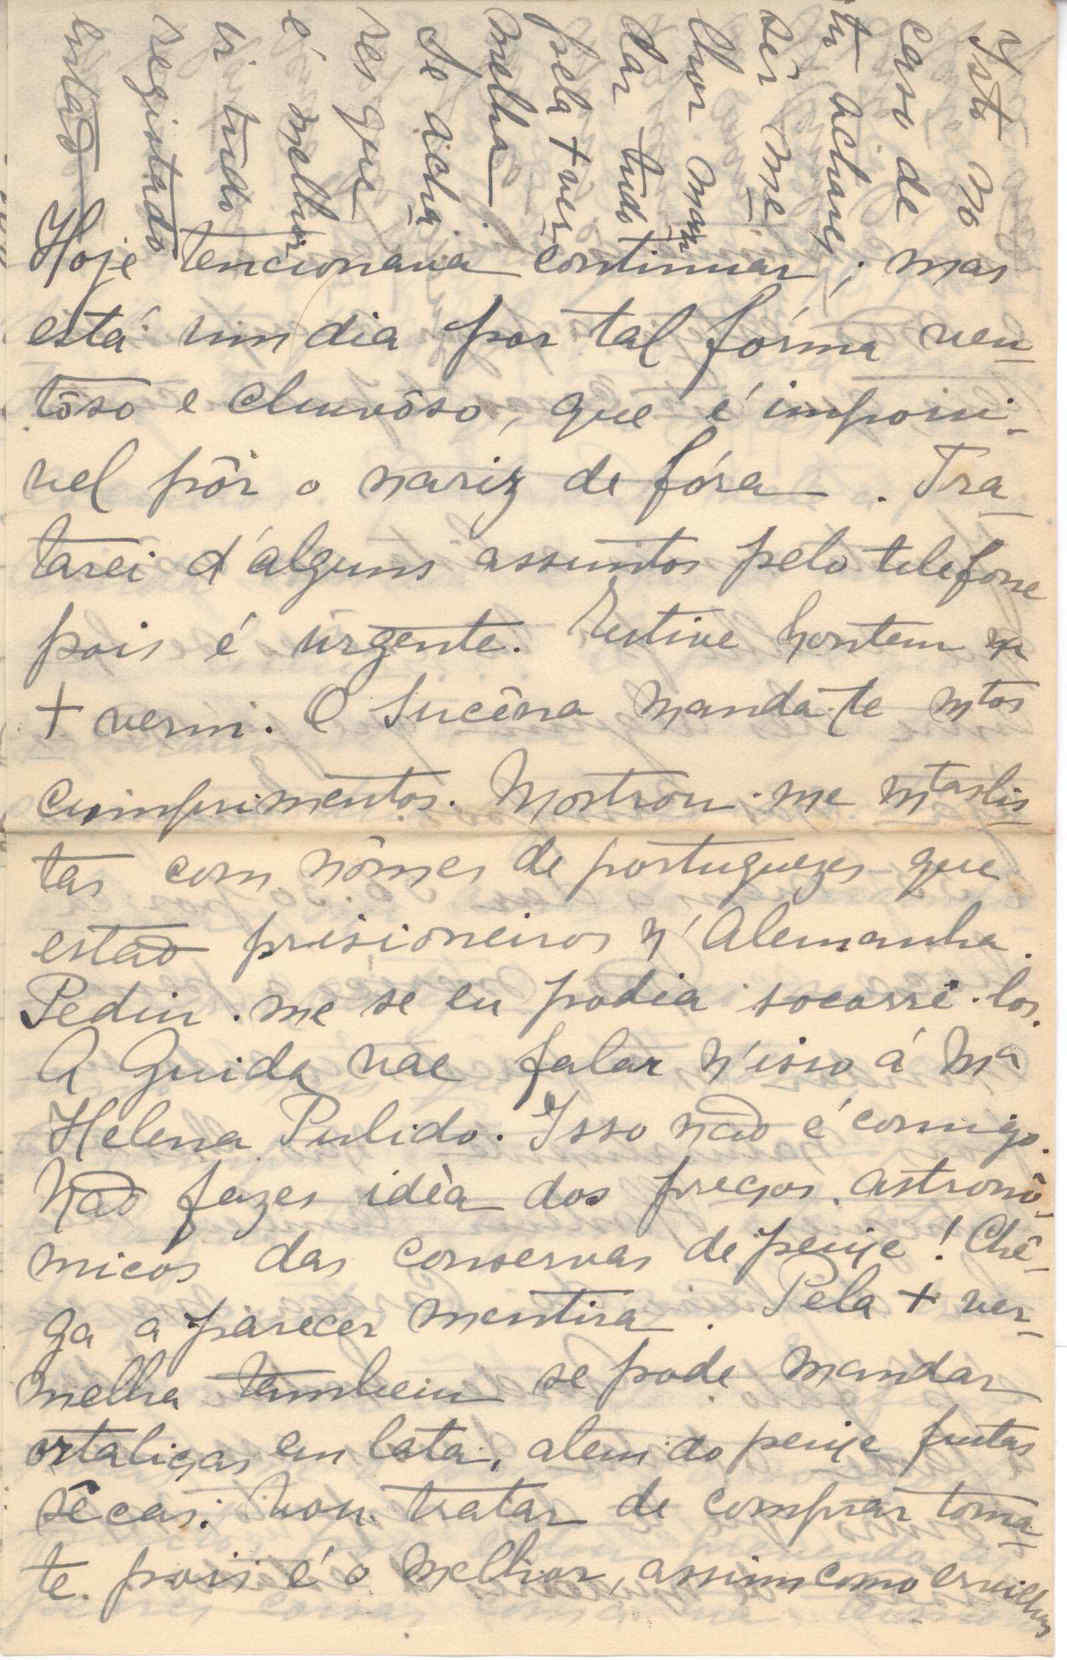 Isto no
caso de
tu achares
sêr me
lhor man
dar tudo
pela + ver
melha
Se achá
res que
é melhor
ir tudo
registado
então
Hoje tencionava continuar; mas
está um dia por tal fórma ven
tôso e chuvôso, que é impossi-
vel pôr o nariz de fóra. Tra
tarei d'alguns assuntos pelo telefone
pois é urgente. Estive hontem na
+ verm. O Sucêna manda-te mtos
cumprimentos. Mostrou-me mtas lis
tas com nômes de portuguezes que
estão prisioneiros n'Alemanha.
Pediu-me se eu podia socorrê-los.
A Guida vae falar n'isso á Ma
Helena Pulido. Isso não é comigo.
Não fazes idèa dos preços astronô-
micos das conservas de peixe! Chê-
ga a parecer mentira. Pela + ver-
melha tambem se pode mandar
ortaliças em lata, alem do peixe frutas
sêcas. Vou tratar de comprar toma-
te pois é o melhor, assim como ervilhas